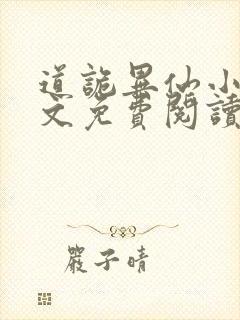 道詭異仙小
文免費閱讀
嚴子晴